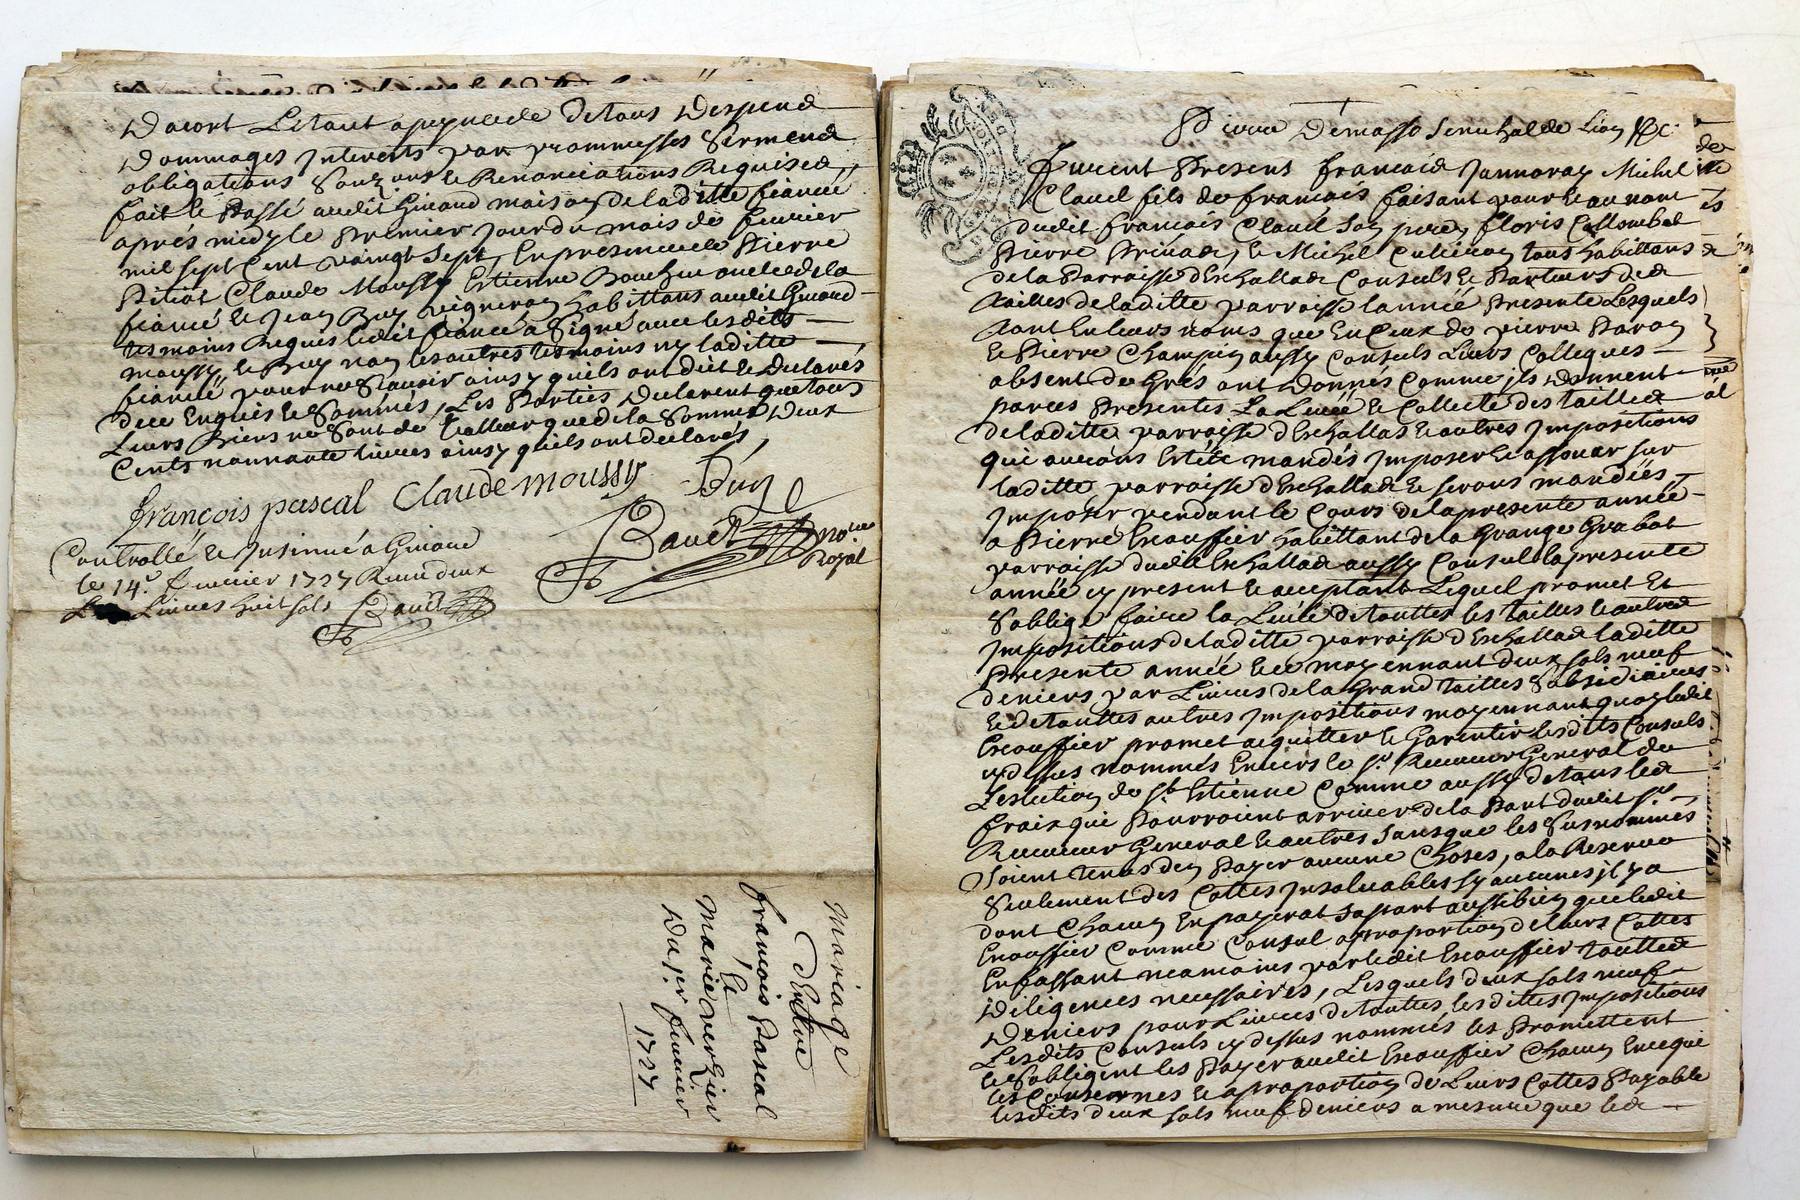 Dacort Letant apeynede detous Despend
Dommages Interests par prommesses Serment
obligations Soumissions & Renonciations Requises
fait & Passé audit Givord maison de laditte fiancée
aprés midy le Premier Jour du mois de feuvrier
mil sept Cent vaingt Sept, En presence de Pierre
Pitiot Claude Moussy Estienne Boucher oncle de la
fiancée & Jean Buy vigneron habittans audit Givord
tesmoins Requis ledit fiancé a Signé avec lesdits
moussy & Buy non les autres tesmoins ny laditte
fiancée pour ne Scavoir ainsy quils ont dit & Declarés
dece Enquis & Sommés, Les Parties Declarent que tous
Leurs Biens ne Sont de Valleur que de la Somme Deux
Cents nonnante livres ainsy quils ont declarés,
françois pascal Claude moussy Buy
Baudt no.re
Royal
Controllé & Insinué a Givord
le 14.e feuvrier 1727 Receu deux
Livres huit sols Baudt
mariage
Entre
francois Pascal
&
Marie verzier
Du 1.er feuvrier
1727
Pierre Demasso Senechal de Lion &c.
furent Presens francois Jannoray Michel
Claud fils de francois faisant pour & au nom
dudit francois Claud Son pere, floris Collombet
Pierre Privade, & Michel Cutivon tous habittans
de la Parroisse d'Eschallas Consuls & Parteurs des
tailles de laditte parroisse lanneé Presente Lesquels
tant En leurs noms que En Ceux de pierre Baron
& Pierre Champin aussy Consuls Leurs Collegues
absent de Grés ont Donnés Comme ils Donnent
par ces Presentes La Leveé & Collecte des tailles
de laditte parroisse d'Eschallas & autres Impositions
qui auront Esteté mandés Imposer & assoner sur
laditte parroisse d'Eschallas & seront mandeés
Imposer pendant le Cours de la presente anneé
a Pierre Escouffier habittant de la Grange Grabot
parroisse dudit Eschallas aussy Consul la presente
anneé cy present & acceptant Lequel promet &
Soblige faire la Leveé de touttes les tailles & autres
Impositions de laditte parroisse d'Eschallas laditte
Presente anneé & ce moyennant deux sols neuf
deniers par Livres de la Grand tailles Subsidiaires
& de touttes autres Impositions moyennant quoy ledit
Escouffier promet acquitter & Garentir lesdits Consuls
cy dessus nommés Envers le S.r Receveur General de
Leslection de S.t Estienne Comme aussy de tous les
frais qui Pourroient arriver de la Part dudit S.r
Receveur General & autres Sans que les Susnommés
Soient tenus den Payer aucune Choses, a la Reserve
Seulement des Cottes Insolvables Sy aucunes il y a
dont Chacun En payerat Sa part aussibien que ledit
Escouffier Comme Consul a proportion de leurs Cottes
En faisant neamoins par ledit Escouffier touttes
Diligences necessaires, Lesquels deux sols neuf
Deniers pour Livres de touttes lesdittes Impositions
Lesdits Consuls cy dessus nommés les Promettent
& Sobligent les Payer audit Escouffier Chacun En ce qui
les Conserne & a proportion de Leurs Cottes Payable
lesdits deux sols neuf deniers a mesure que les